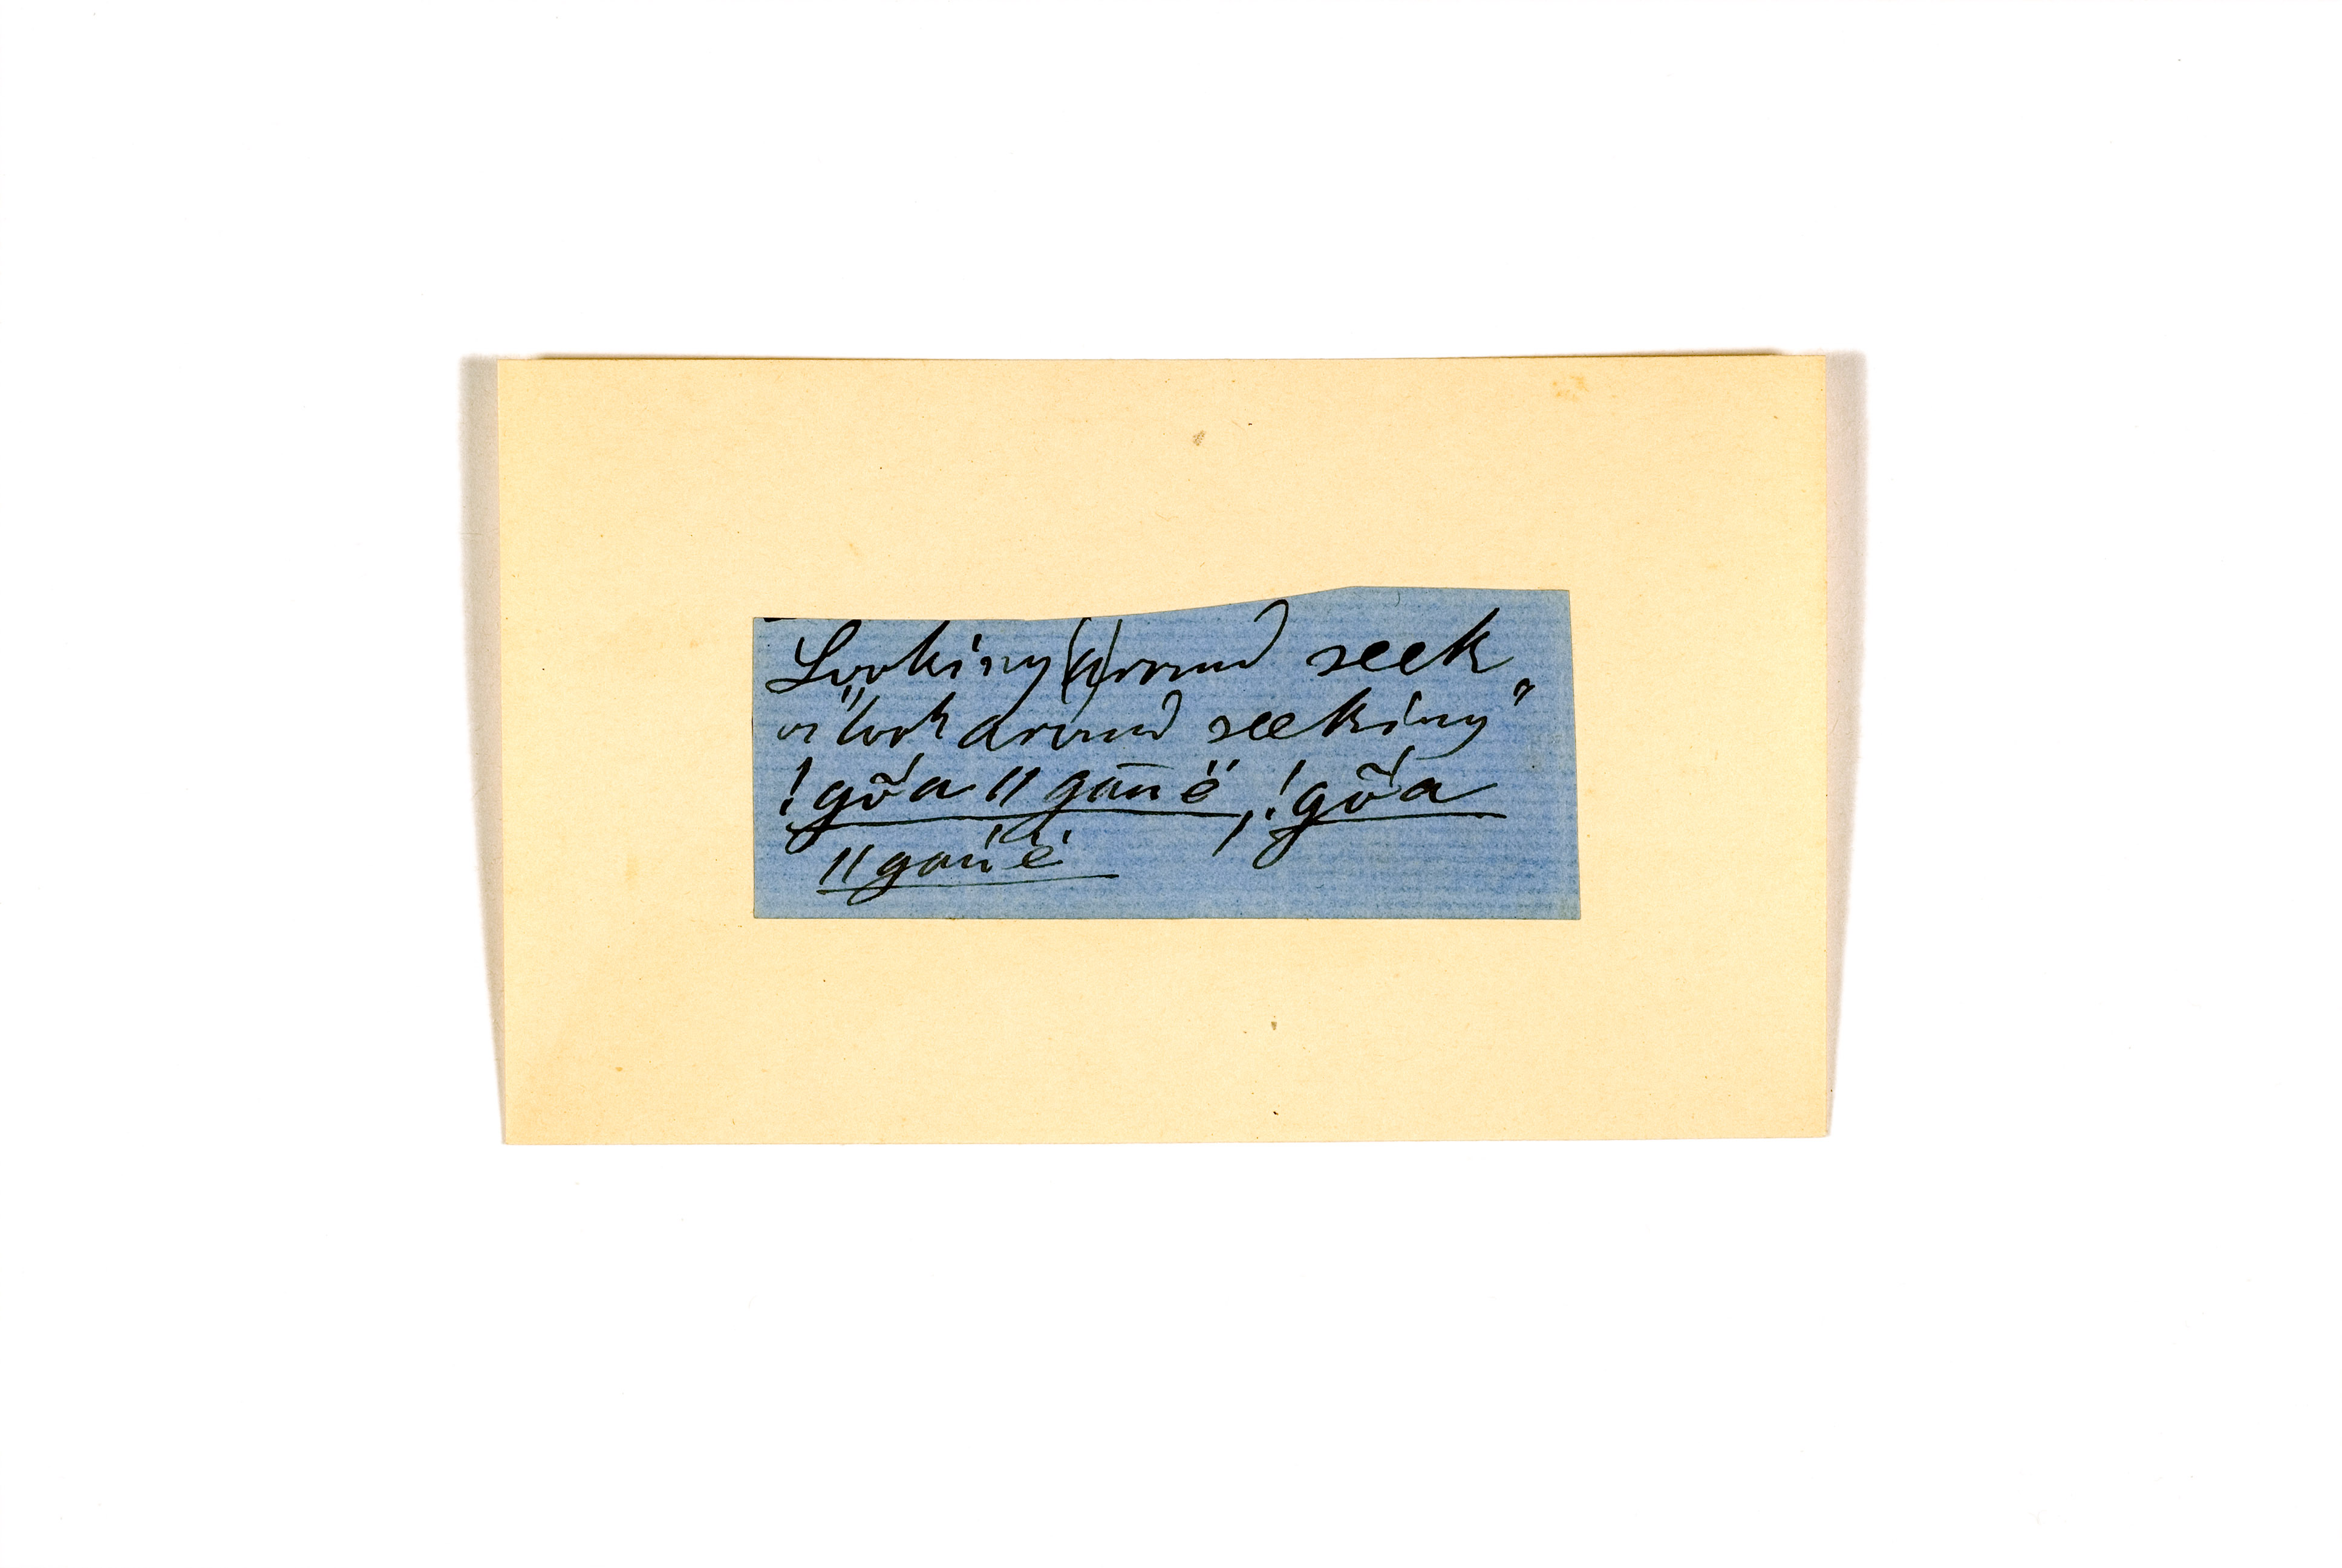 Looking (a)round seek
or "look around seeking"
!gõá ǁgaūë, !gõá
ǁgaúë